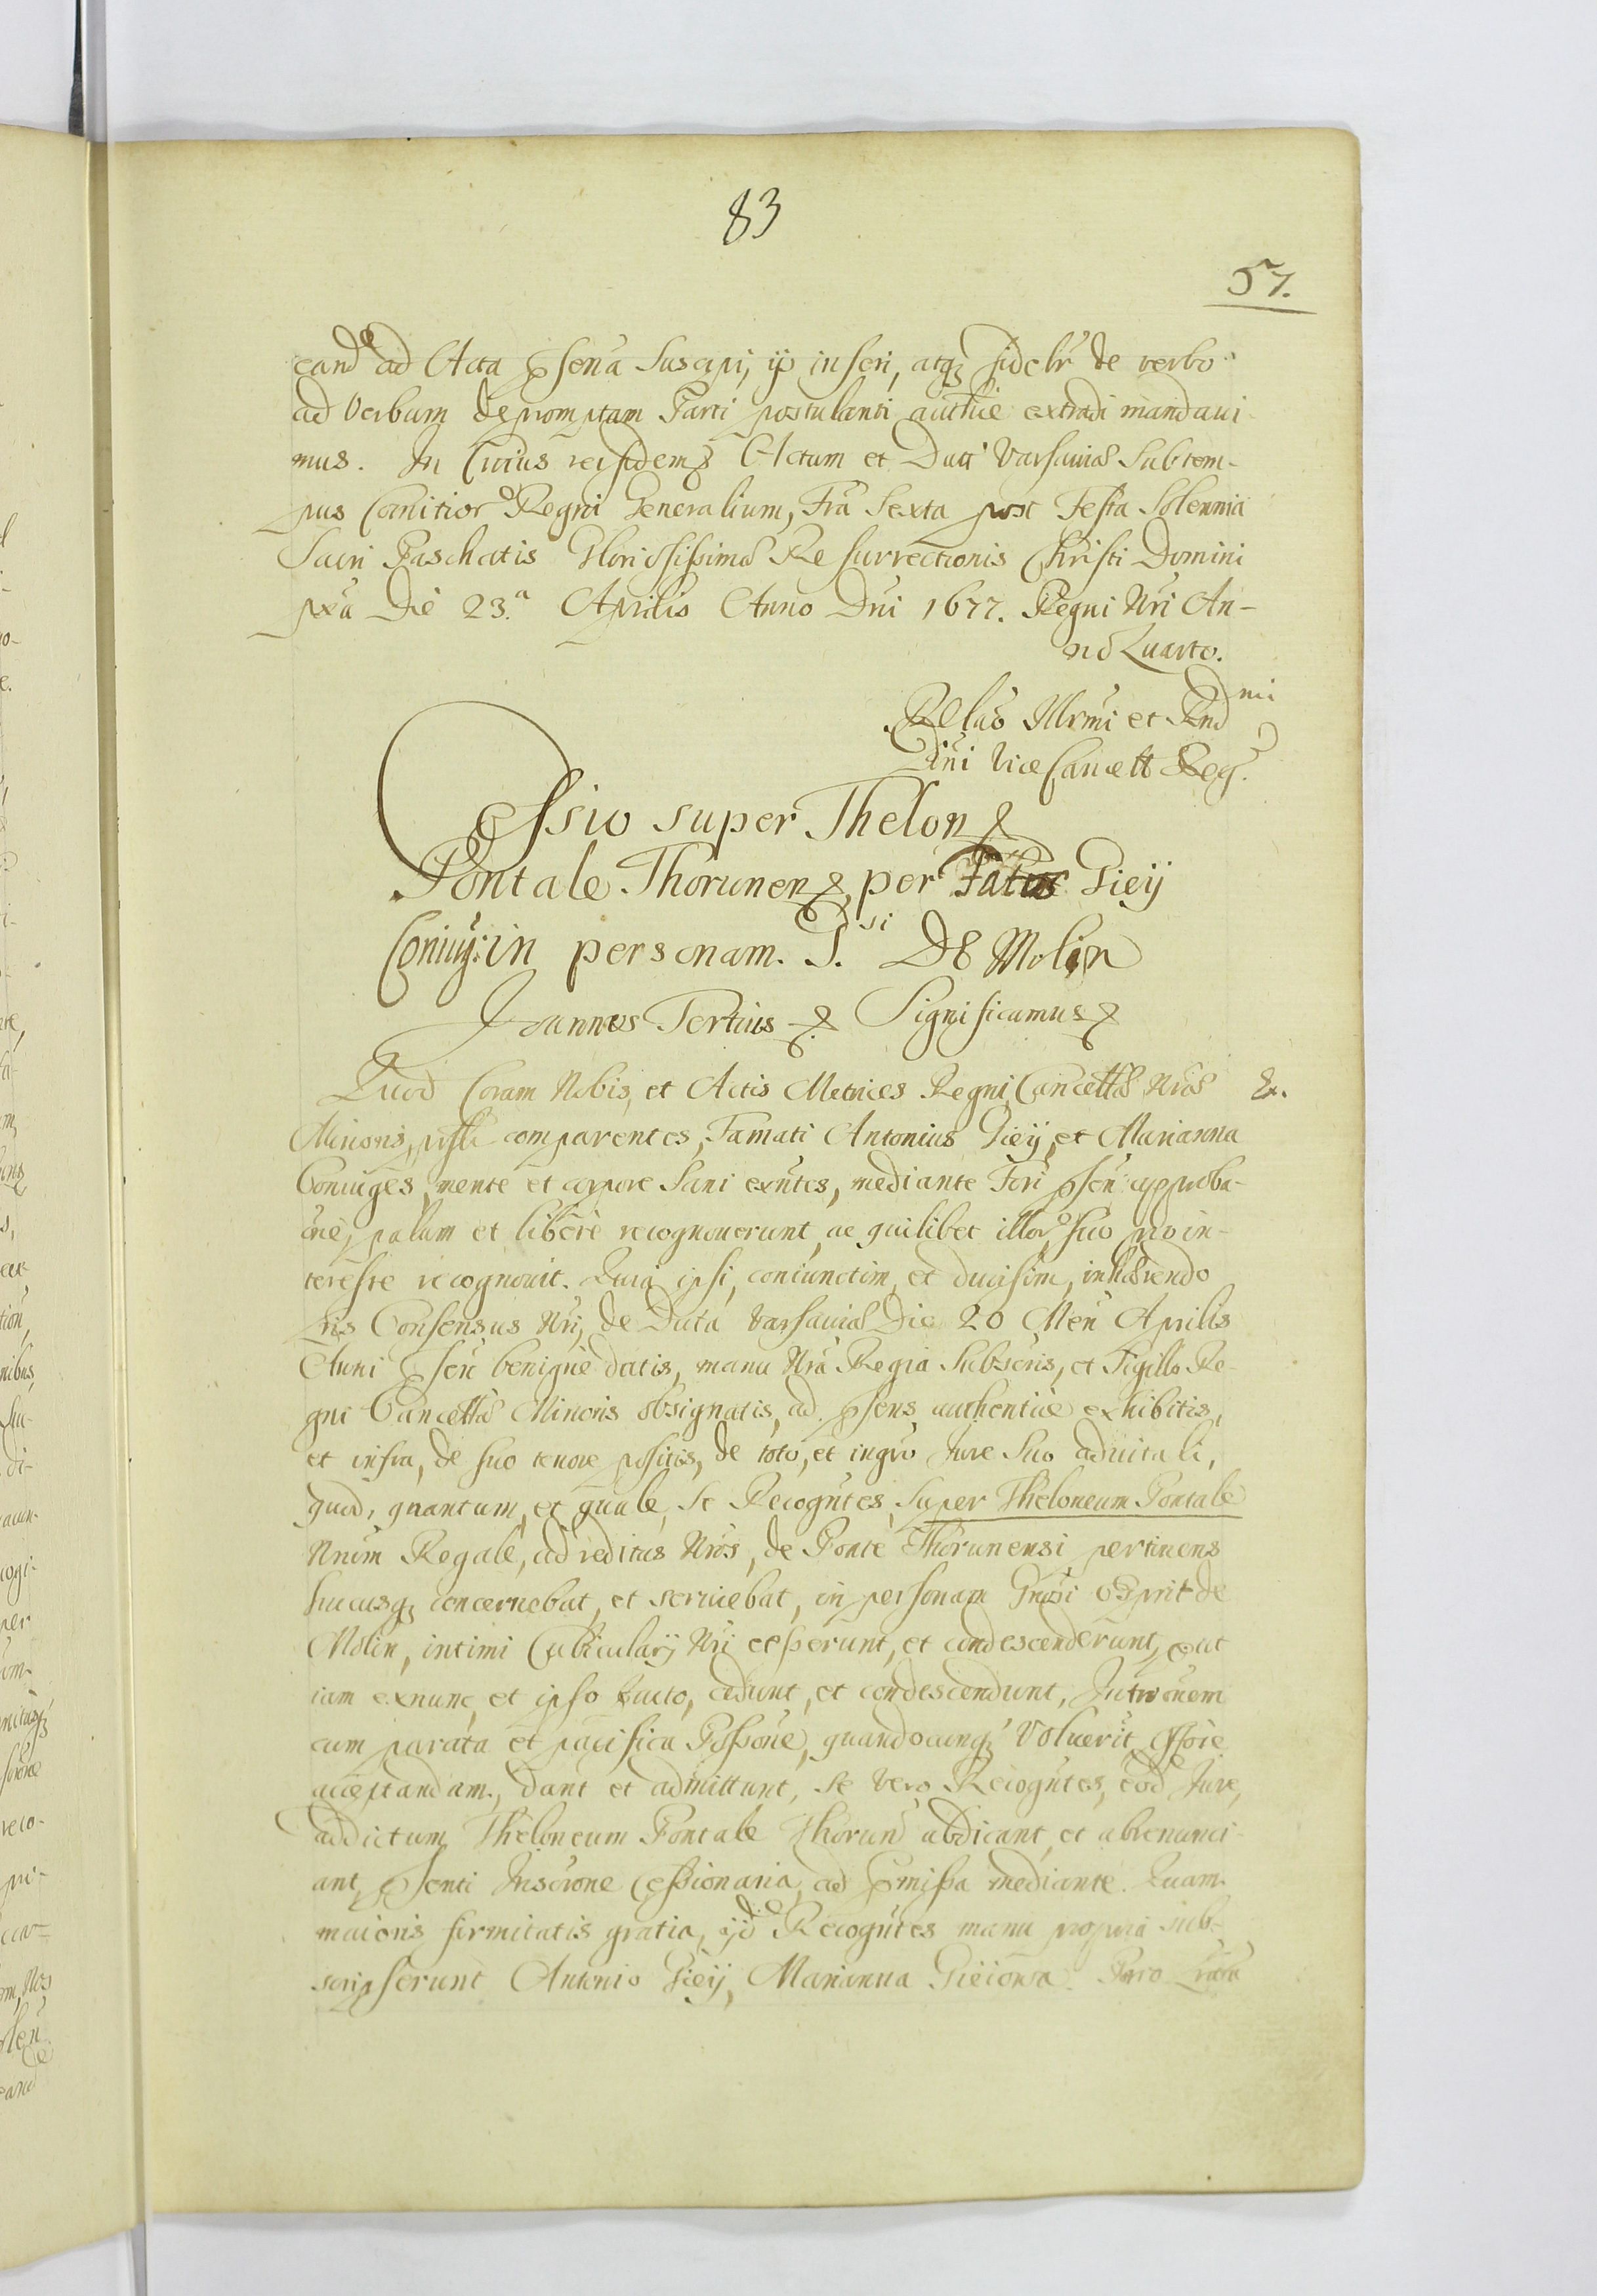 83
57.
eand ad Acta pñsentia Suscipi, ijs inseri, atq fidelr de verbo
ad verbum depromptam Parti postulanti authce extradi mandavi-
mus. In Cuius rei fidem & Actum et Datt Varsaviæ Sub tem-
pus Comitior Regni Generalium, Fra Sexta post Festa Solennia
Sacri Paschatis Gloriosissimæ Resurrectionis Christi Domini
pxa Die 23.a Aprilis Anno Dni 1677. Regni Nri An-
no Quarto.
Relatio Illrmi et Rndmi
Dni Vice Cancell Reg.
Cessio super Thelon &
Pontale Thorunen & per Giey
Coniug: in personam G.si De Molin
Joannes Tertius & Significamus &
Quod Coram Nobis, et Actis Metrices Regni, Cancellæ Nræ Ex.
Minoris, psolr comparentes, Famati Antonius Giey, et Marianna
Coniuges, mente et corpore Sani exñtes, mediante Fori pñsen approba-
one, palam et liberè recognoverunt, ac quilibet illor suo pro in-
teresse recognovit. Quia ipsi, coniunctim, et divisim, inhærendo
Lris Consensus Nri, de Data Varsaviæ Die 20 Men Aprilis
Anni pñsen benignè datis, manu Nra Regia Subscris, et Sigillo Re-
gni Cancellæ Minoris obsignatis, ad pñsens authenticè exhibitis,
et infra, de suo tenore positis, de toto, et ingro Jure Suo advitali,
quod, quantum, et quale, Se Recogntes, Super Theloneum Pontale
Nrum Regale, ad reditus Nros, de Ponte Thorunensi pertinens
hucusq concernebat, et serviebat, in personam Gnosi Esprit de
Molin, intimi Cubicularij Nri cesserunt, et condescenderunt, put
iam exnunc, et ipso facto, cedunt, et condescendunt, Intromonem
cum parata et pacifica Possone, quandocunq Voluerit
acceptandam, dant et admittunt, Se vero Recogntes, eod Jure,
ad dictum Theloneum Pontale Thorun abdicant, et abrenunci-
ant, pñsenti Inscrone Cessionaria, ad pmissa mediante. Quam
maioris firmitatis gratia, ijd Recogntes manu propria sub-
scripserunt Antonio Giey, Marianna Gieiowa.